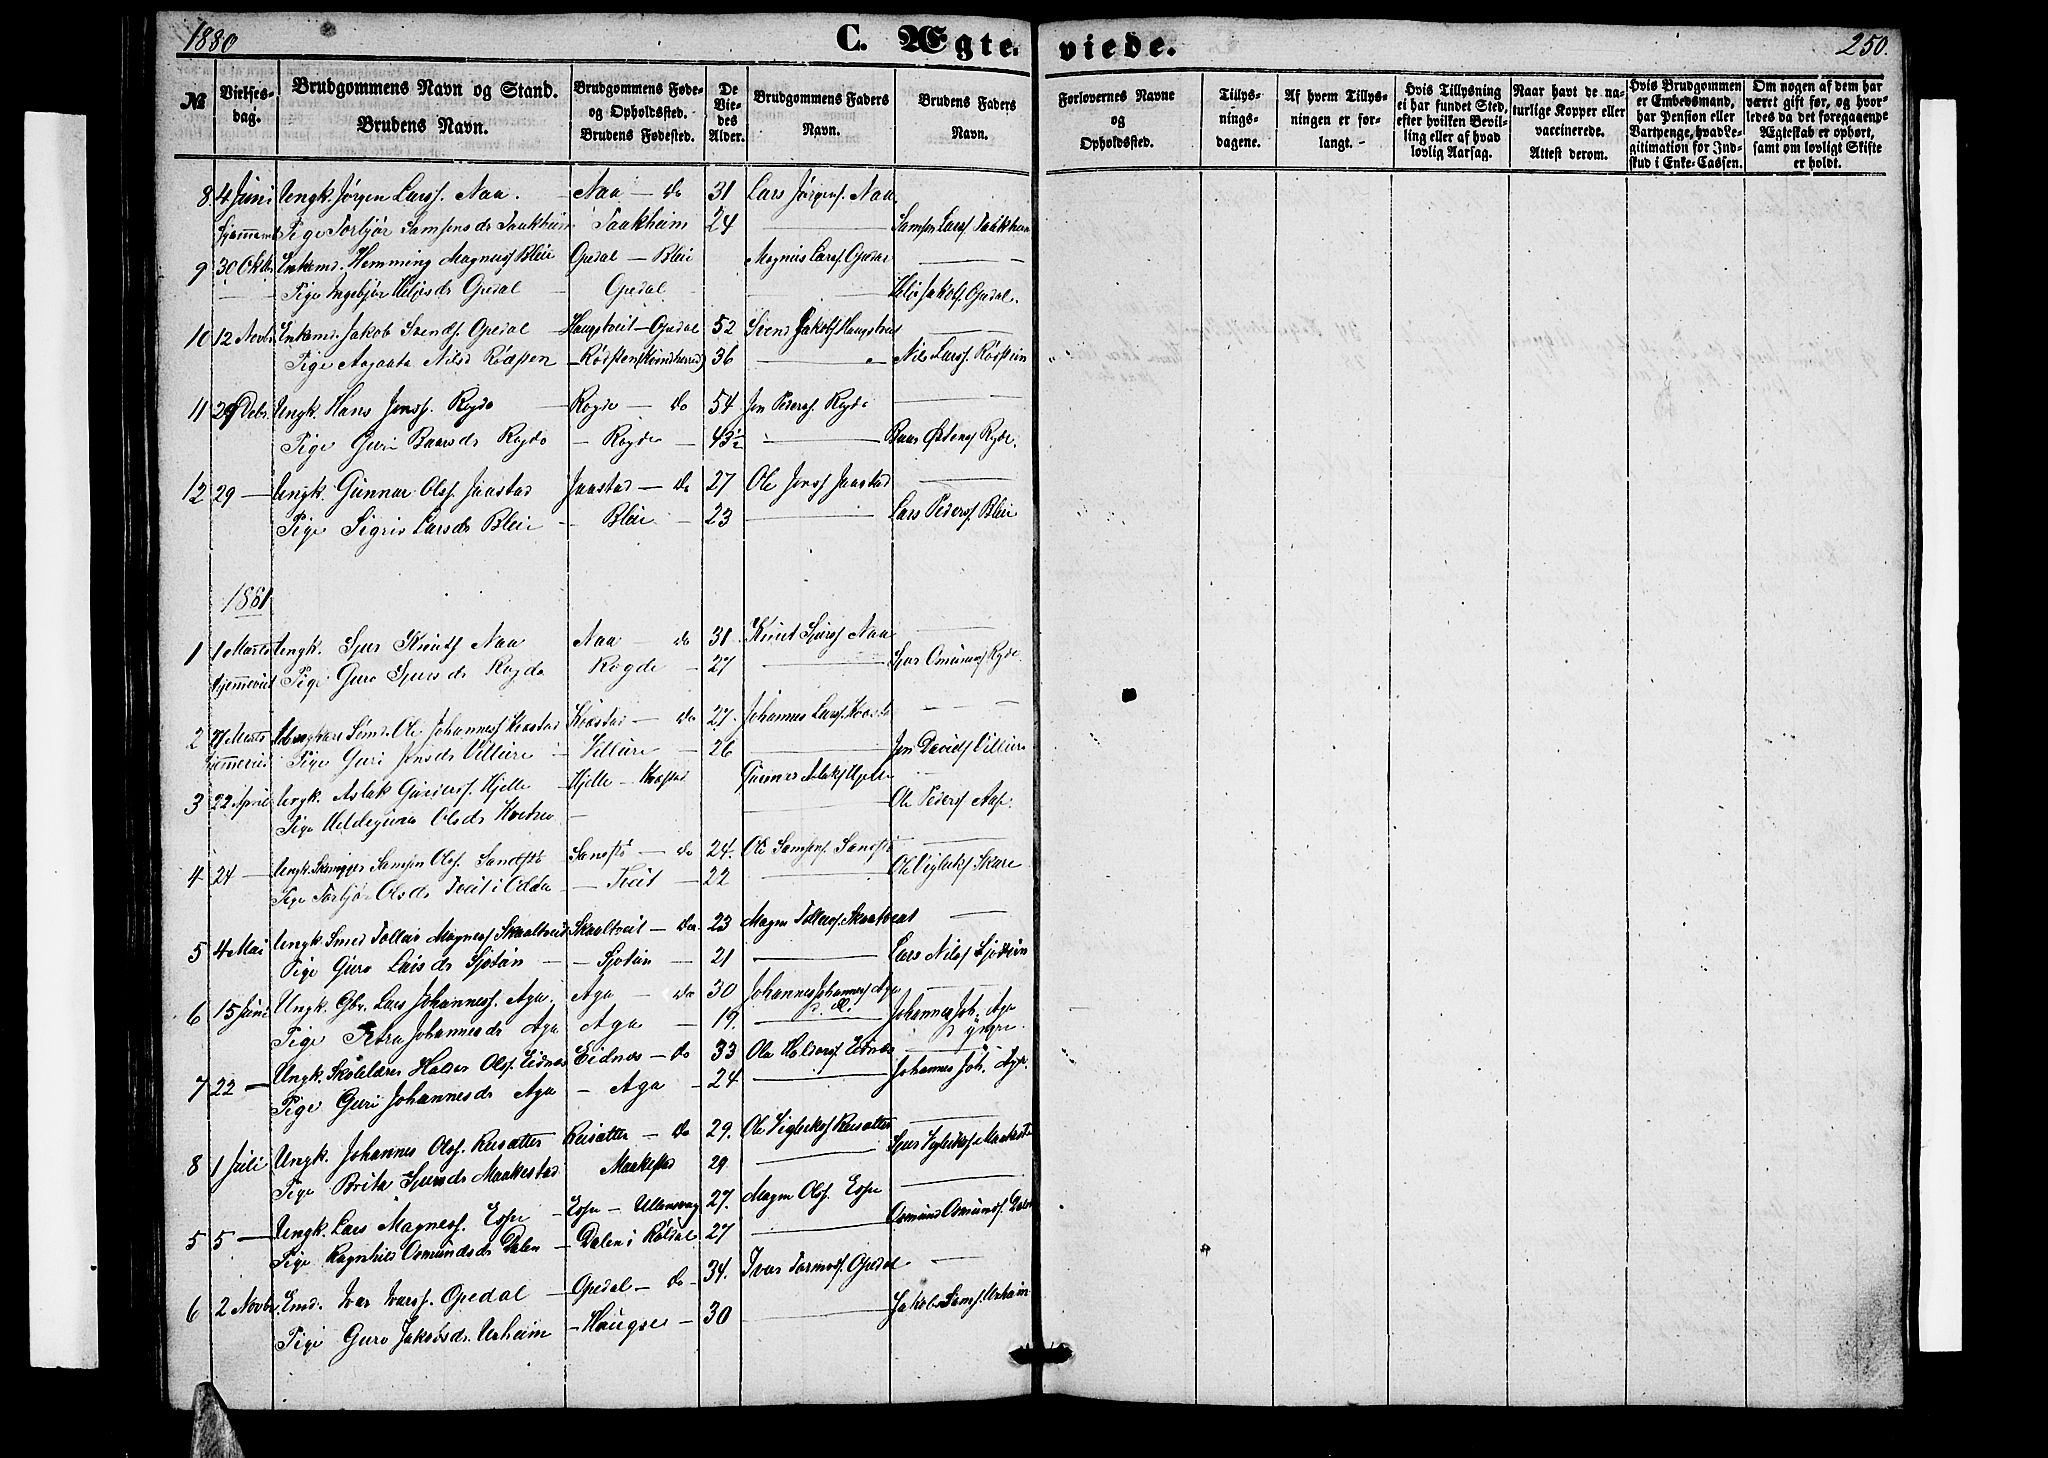 1880
C. Ægte=
viede.
250.
№
Vielses=dag.
Brudgommens Navn og Stand.
Brudens Navn.
Brudgommens Føde= og Opholdssted.
Brudens Fødested.
De Viedes Alder.
Brudgommens Faders Navn.
Brudens Faders Navn.
Forlovernes Navne og Opholdssted.
Tillysningsdagene.
Af hvem Tillysningen er forlangt.
Hvis Tillysning ei har fundet Sted, efter hvilken Bevilling eller af hvad lovlig Aarsag.
Naar havt de naturlige Kopper eller vaccinerede.
Attest derom.
Hvis Brudgommen er Embedsmand, har Pension eller Vartpenge, hvad Legitimation for Indskud i Enke-Cassen.
Om nogen af dem har været gift før, og hvorledes da det foregaaende Ægteskab er ophørt, samt om lovligt Skifte er holdt.
8 4 Juni Ungk. Jørgen Larss. Naa. Naa — do 31 Lars Jørgens. Naa
Pige Torbjør Samsonsdr Taakheim Taakheim 24 Samson Larss Taakheim
9 30 Oktb. Enkemd. Hemming Magness Bleie Opedal — Bleie Magnus Larss Opedal
Pige Ingebjør Opedal Opedal Jakobs. Opedal.
10 12 Novbr. Enkemd. Jakob Svends. Opedal Haugstveit — Opedal 52 Svend Jakobs Haugstveit
Pige Aagaata Nilsd Rødsten Rødsten (Kvindherred) 36 Nils Larss. Rødstein
11 29 Debr. Ungk. Hans Jonss. Rogde Rogde — do 54 Jon Peders. Rogde
Pige Guri Baarsdr Rogde — Rogde — 43½ Baar Østens Rogde.
12 29 — Ungk. Gunnar Olss. Jaastad Jaastad — do 27 Ole Jonss Jaastad
Pige Sigrid Larsdr Bleie — Bleie — 23 Lars Pederss. Bleie
1881
1 1 Marts Ungk. Sjur Knuts Naa Naa — do 31 Knut Sjurss Naa
Hjemmeviet Pige Guro Sjursdr Rogde Rogde — 27 Sjur Osmunds Rogde
2 Marts Ole Johanness Kvæstad Kvæstad — do 27. Johannes Larss.
Pige Guri Jonsdr Villure — Villure — 26 Jon Davids Villure
3 22 April Ungk. Aslak Gunnarss. Hjelle Hjelle — Kvæstad Gunnar Aslaks Hjelle
Pige Olsdr Ole Pederss Aga.
4 24 — Ungk. Samson Olss. Sandstø Sandstø — do 24. Ole Samsons. Sandstø
Pige Torbjør Olsdr Tveit i Odda — Tveit — 22 Ole Vigleiks. Skare
5 4 Mai Ungk. Smed Tolleiv Magness Skaaltveit Skaaltveit — do 23 Magne Tolleivs. Skaaltveit
Pige Guro Larsdr Sjotun — Sjotun — 21 Lars Nilss Sjotun
6 15 Juni Ungk. Gbr. Lars Johanness. Aga. Aga — do 30 Johannes Johanness Aga
Pige Johannesdr Aga Aga — 19. Johannes Joh. Aga d yngre.
7 22 — Ungk. Skolelærer Haldor Olss. Eidnes Eidnes — do 33 Ola Haldorss. Eidnes
Pige Guri Johannesdr Aga — Aga — 24 Johannes Joh. Aga.
8 1 Juli Ungk. Johannes Olss. Reisæter Reisæter — do 29. Ole Vigleiks Reisæter
Pige Brita Sjursdr Maakestad Maakestad 29 Sjur Vigleiks. Maakestad
5 5 — Ungk. Lars Magness. Espe — Espe — Ullensvang 27. Magne Olss. Espe
Pige Ragnhild Osmundsdr Dalen — Dalen i Røldal 27 Osmund Osmunds. Dalen
6 2 Novbr. Emd. Ivar Ivarss. Opedal — Opedal — do — 34. Ivar Tormods. Opedal
Pige Guro Jakobsdr. Urheim — Haugse — 30 Jakob Sams. Urheim